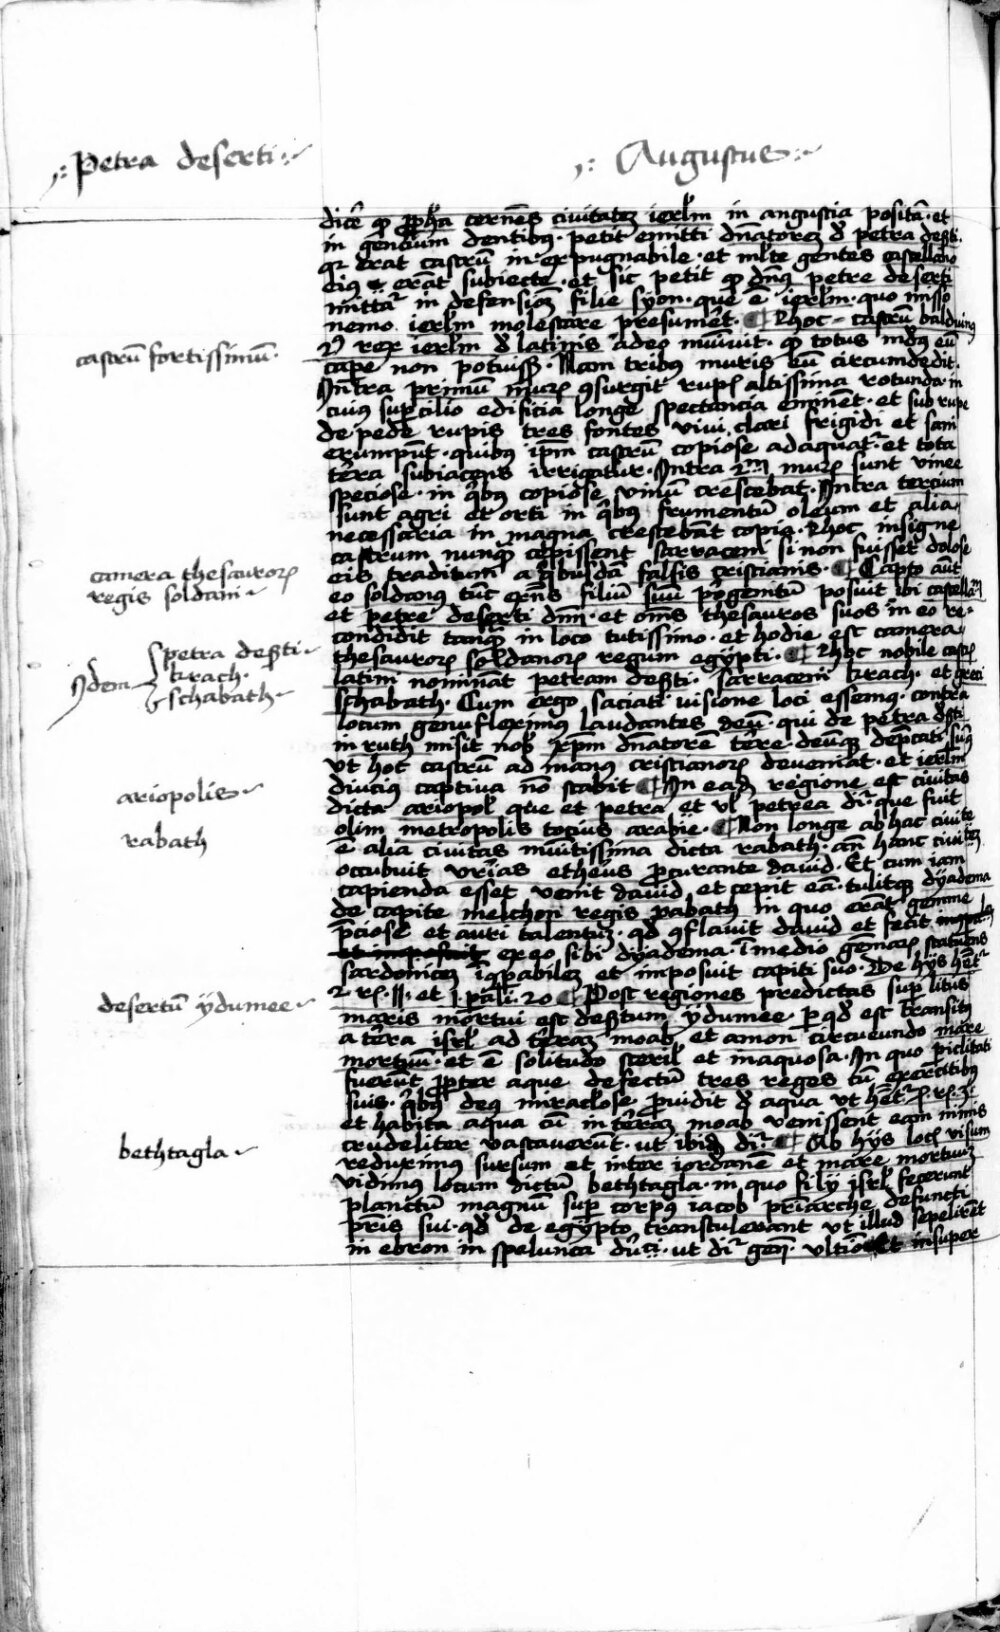 Petra deserti
Augustus
dicere quod propheta cernens civitatem ierlm in angustia positam · et
in gentium dentibus · petit emitti dnatorem de petra deserti ·
quia erat castrum inexpugnabile · et multe gentes castellano
eius erant subiecte · et sic petit quod dns petre deserti
mittatur in defensionem filie syon · que est ierlm · quo misso
nemo ierlm molestare presumeret · Hoc castrum balduinus
rex ierlm de latinis adeo munivit · quod totus mundus eum
castrum fortissimum ·
capere non potuisset · Nam tribus muris eum circumdedit ·
Intra primum murum consurgit rupes altissima rotunda · in
cuius supercilio edificia longe spectancia eminent · et sub rupe
de pede rupis tres fontes vivi clari frigidi et sani
erumpunt · quibus ipsum castrum copiose adaquatur · et tota
terra subiacens irrigatur · Intra 2m murum sunt vinee
speciose · in quibus copiose vinum crescebat · Intra tercium
sunt agri et orti in quibus frumentum oleum et alia
necessaria in magna crescebant copia · Hoc insigne
castrum nunquam cepissent sarraceni si non fuisset dolose
camera thesaurorum
eis traditum a quibusdam falsis cristianis · Capto autem
regis soldani
eo soldanus tunc existens filium suum primogenitum posuit ibi castellanum
et petre deserti dominum · et omnes thesauros suos in eo re-
condidit tanquam in loco tutissimo · et hodie est camera
petra deserti
thesaurorum soldanorum regum egypti · Hoc nobile castrum
Idem krach ·
latini nominant petram deserti · sarraceni krach · et greci
schabath
schabath · Cum ergo saciati visione loci essemus · contra
locum genufleximus laudantes deum · qui de petra deserti
in ruth misit nobis xpm dnatorem terre · deumque deprecati sumus
ut hoc castrum ad manus cristianorum deveniat · et ierlm
diucius captiva non stabit In eadem regione est civitas
ariopolis
dicta ariopolis que et petra et vel petrea dicitur · que fuit
olim metropolis tocius arabie · Non longe ab hac civitate
rabath
est alia civitas munitissima dicta rabath · ante hanc civitatem
occubuit urias etheus procurante david · Et cum iam
capienda esset venit david et cepit eam · tulitque dyadema
de capite melchon regis rabath in quo erant gemme
preciose et auri talentum · quod conflavit david et fecit
ex eo sibi dyadema · in medio gemmarum statuens
sardonicem incomparabilem et imposuit capiti suo · De hys habetur
2 Rex · 11 · et 1 parali · 20 Post regiones predictas super litus
desertum ydumee
maris mortui est desertum ydumee per quod est transitus
a terra isrl ad terram moab et amon circueundo mare
mortuum · et est solitudo sterilis et inaquosa · In quo periclitati
fuerunt propter aque defectum tres reges cum exercitibus
suis · quibus deus miraculose providit de aqua ut habetur
et habita aqua cum in terram moab venissent eam nimis
crudeliter vastaverunt · ut ibidem dicitur · Ab hys locis visum
bethtagla
reduximus sursum et inter iordanem et mare mortuum
vidimus locum dictum bethtagla · in quo filii isrl fecerunt
planctum magnum super corpus iacob patriarche defuncti
patris sui · quod de egypto transtulerant ut illud sepelirent
in ebron in spelunca · ut dicitur gen · ultimo Et insuper